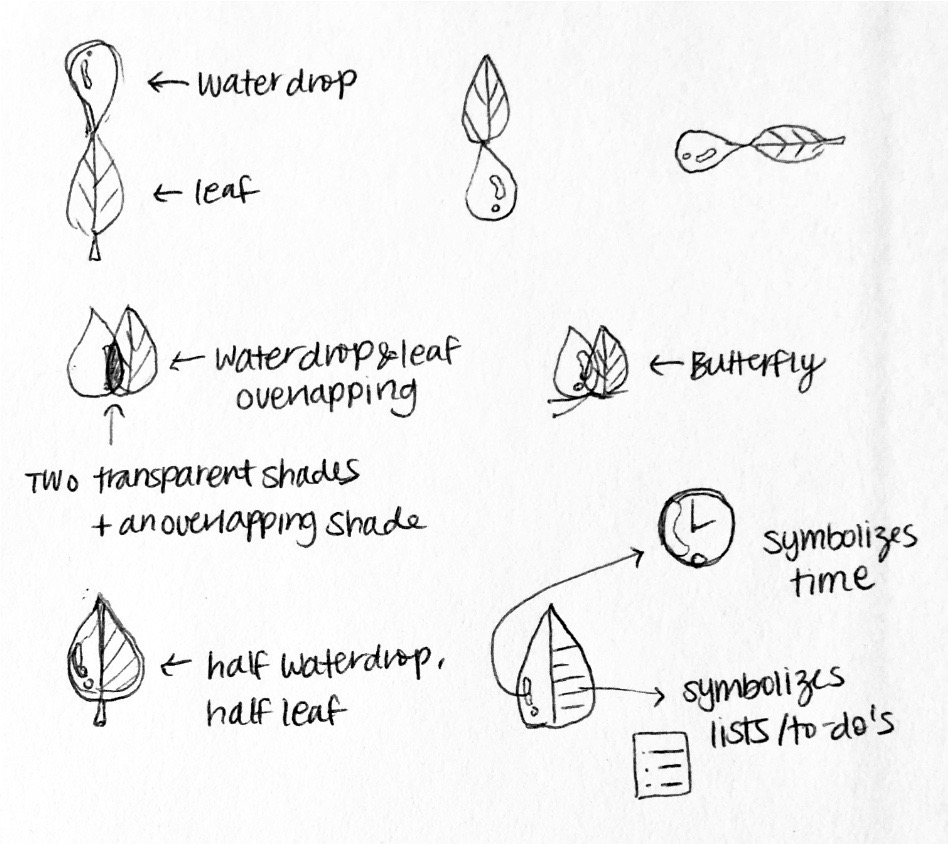 waterdrop
leaf
waterdrop & leaf
overlapping
Butterfly
TWO transparent shades
+ an overlapping shade
symbolizes
time
half waterdrop,
half leaf
symbolizes
lists/to-do's